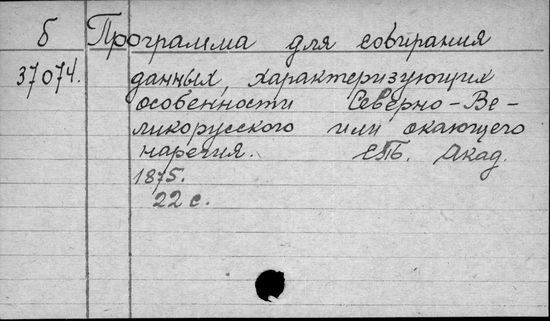 б Программа для собирания
37074. данных, характеризующих
особенности Северно-Ве-
ликорусского или окающего
наречия. СПб. Акад.
1875.
22 с.